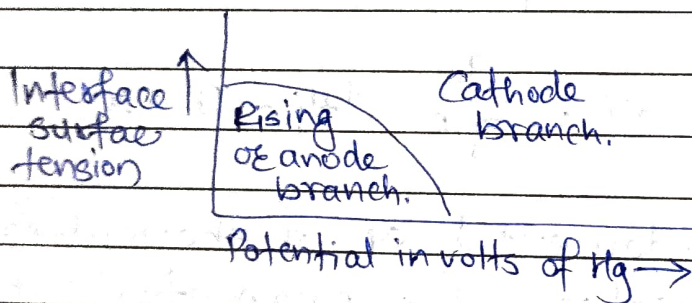 Interface
surfac
tension
Rising
or anode
branch.
Cathode
branch.
Potential in volts of Hg